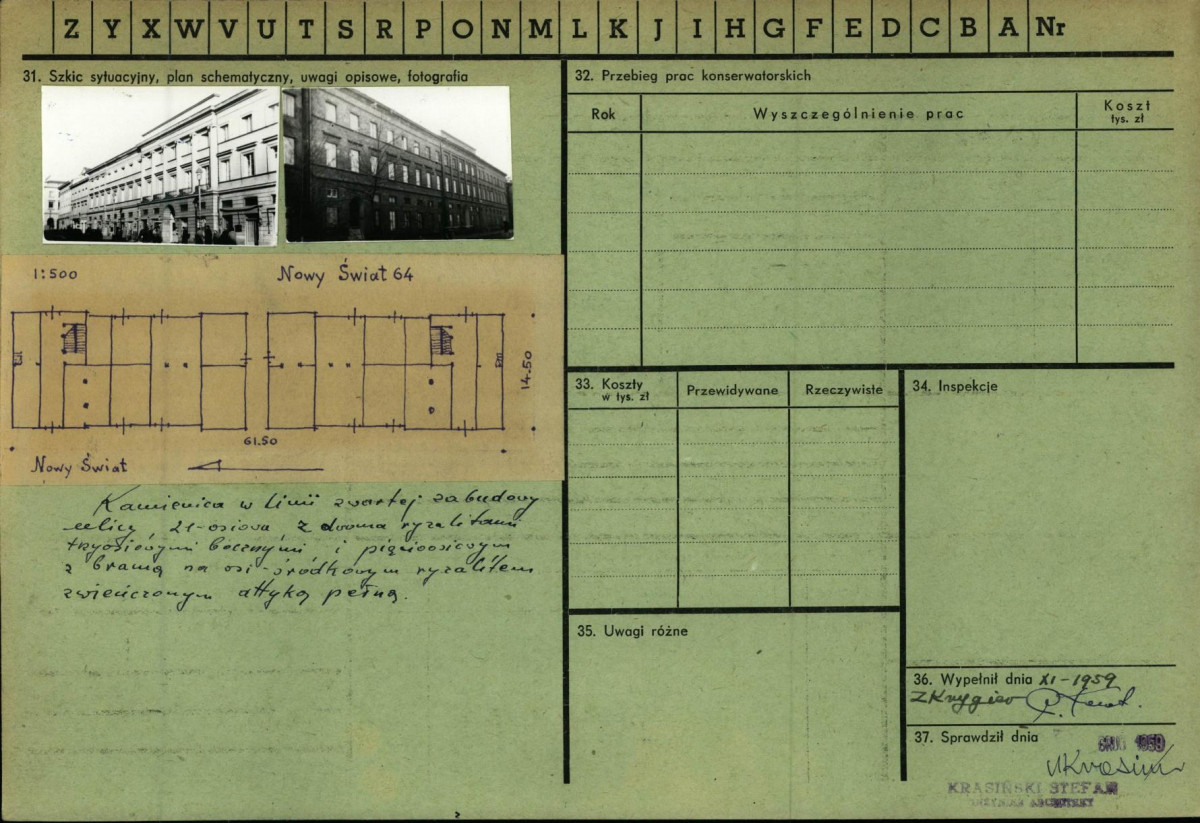 Z Y X W V U T S R P O N M L K J I H G F E D C B A Nr
31. Szkic sytuacyjny, plan schematyczny, uwagi opisowe, fotografia
1:500
Nowy Świat 64
14.50
61.50
Nowy Świat
Kamienica w linii zwartej zabudowy
ulicy 21-osiowa z dwoma ryzalitami
trzyosiowymi bocznymi i pięcioosiowym
z bramą na osi środkowym ryzalitem
zwieńczonym attyką pełną.
32. Przebieg prac konserwatorskich
Rok
Wyszczególnienie prac
Koszt
tys. zł
33. Koszty
w tys. zł
Przewidywane
Rzeczywiste
34. Inspekcje
35. Uwagi różne
36. Wypełnił dnia XI-1959
37. Sprawdził dnia
1959
KRASIŃSKI STEFAN
INŻYNIER ARCHITEKT